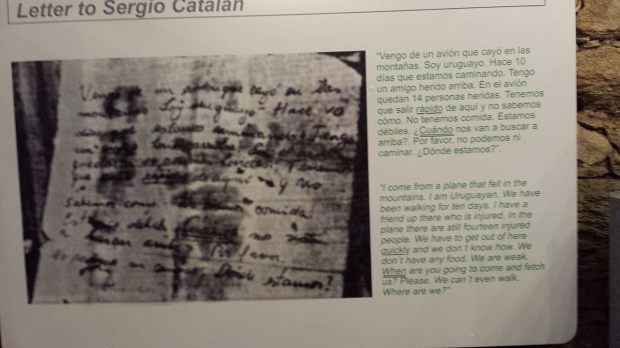 Letter to Sergio Catalán
Vengo de un avion que cayó en las
montañas Soy uruguayo Hace 10
estamos caminando. Tengo
de aquí y no
sabemos como comida
estamos debiles no van
a buscar arriba? Por favor, no
Donde estamos?
"Vengo de un avión que cayó en las
montañas. Soy uruguayo. Hace 10
días que estamos caminando. Tengo
un amigo herido arriba. En el avión
quedan 14 personas heridas. Tenemos
que salir rápido de aquí y no sabemos
cómo. No tenemos comida. Estamos
débiles. ¿Cuándo nos van a buscar a
arriba?. Por favor, no podemos ni
caminar. ¿Dónde estamos?".
"I come from a plane that fell in the
mountains. I am Uruguayan. We have
been walking for ten days. I have a
friend up there who is injured. In the
plane there are still fourteen injured
people. We have to get out of here
quickly and we don´t know how. We
don´t have any food. We are weak.
When are you going to come and fetch
us? Please. We can´t even walk.
Where are we?"